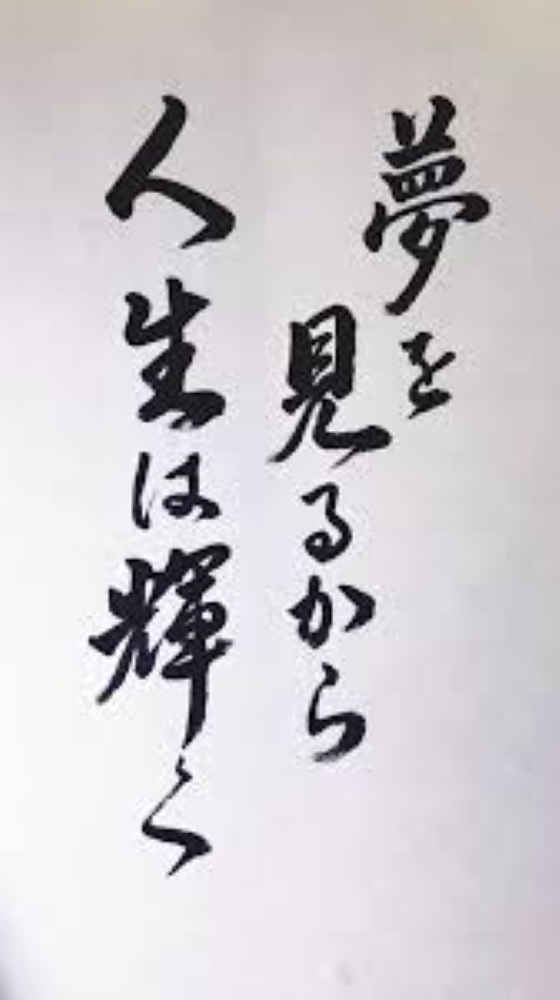 夢を
見るから
人生は輝く